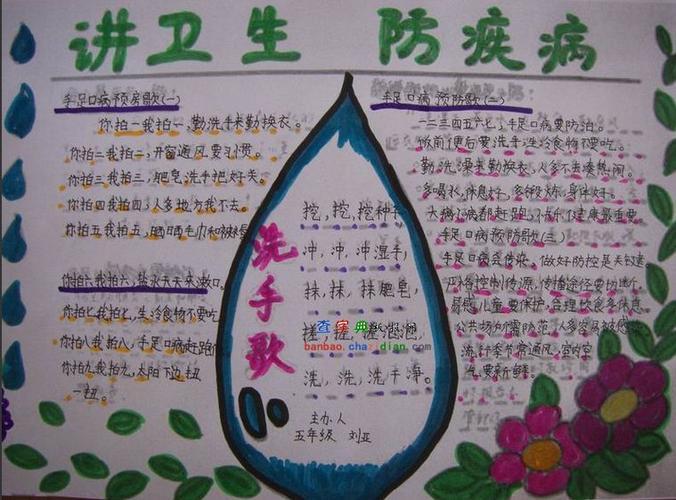 讲卫生 防疾病
手足口病预防歌(一)
你拍一我拍一,勤洗手来勤换衣。
你拍二我拍二,开窗通风要习惯。
你拍三我拍三,肥皂洗手把好关。
你拍四我拍四,人多地方我不去。
你拍五我拍五,晒晒毛巾和被褥
你拍六我拍六,盐水天天来漱口。
你拍七我拍七,生冷食物不要吃
你拍八我拍八,手足口病赶跑
你拍九我拍九,太阳下边扭
一扭。
洗手歌
挖,挖,挖种手,
冲,冲,冲湿手,
抹,抹,抹肥皂,
搓,搓,搓泡泡,
洗,洗,洗干净。
查字典
banbao.chazidian.com
主办人
五年级 刘亚
手足口病预防歌(二)
一二三四五六七,手足口病要防治。
饭前便后要洗手,生冷食物不要吃。
勤洗澡来勤换衣,人多不去凑热闹。
多喝水,休息好,多锻炼,身体好。
大病小病都赶跑,健康最重要
手足口病预防歌(三)
手足口病会传染,做好防控是关键
严格控制传染源,传播途径要切断,
易感儿童要保护,合理饮食多休息
公共场所需防范,人多容易被感染
流行季节常通风,室内空
气要新鲜